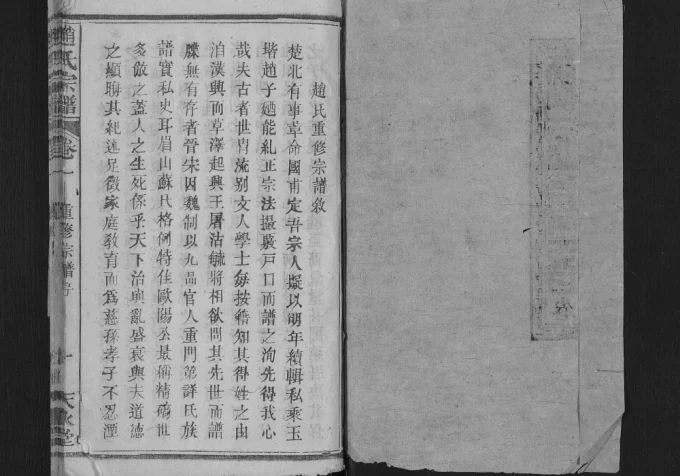 趙氏重修宗譜敘
楚北有事革命國甫定吾宗人擬以明年續輯私乘玉
堦趙子廼能糺正宗法撮裒戸口而譜之洵先得我心
哉夫古者世冑流别文人學士每按籍知其得姓之由
洎漢興而草澤起與王屠沽毓將相欲問其先世而譜
牒無有存者晉宋因魏制以九品官人重門第詳氏族
譜實私史耳眉山蘇氏格例特佳歐陽公最稱精確世
多倣之蓋人之生死係乎天下治與亂盛衰與夫道德
之顯聯其紀述足徵家庭教育而爲慈孫孝子不忍湮
趙氏宗譜
卷一
重修宗譜
天水堂